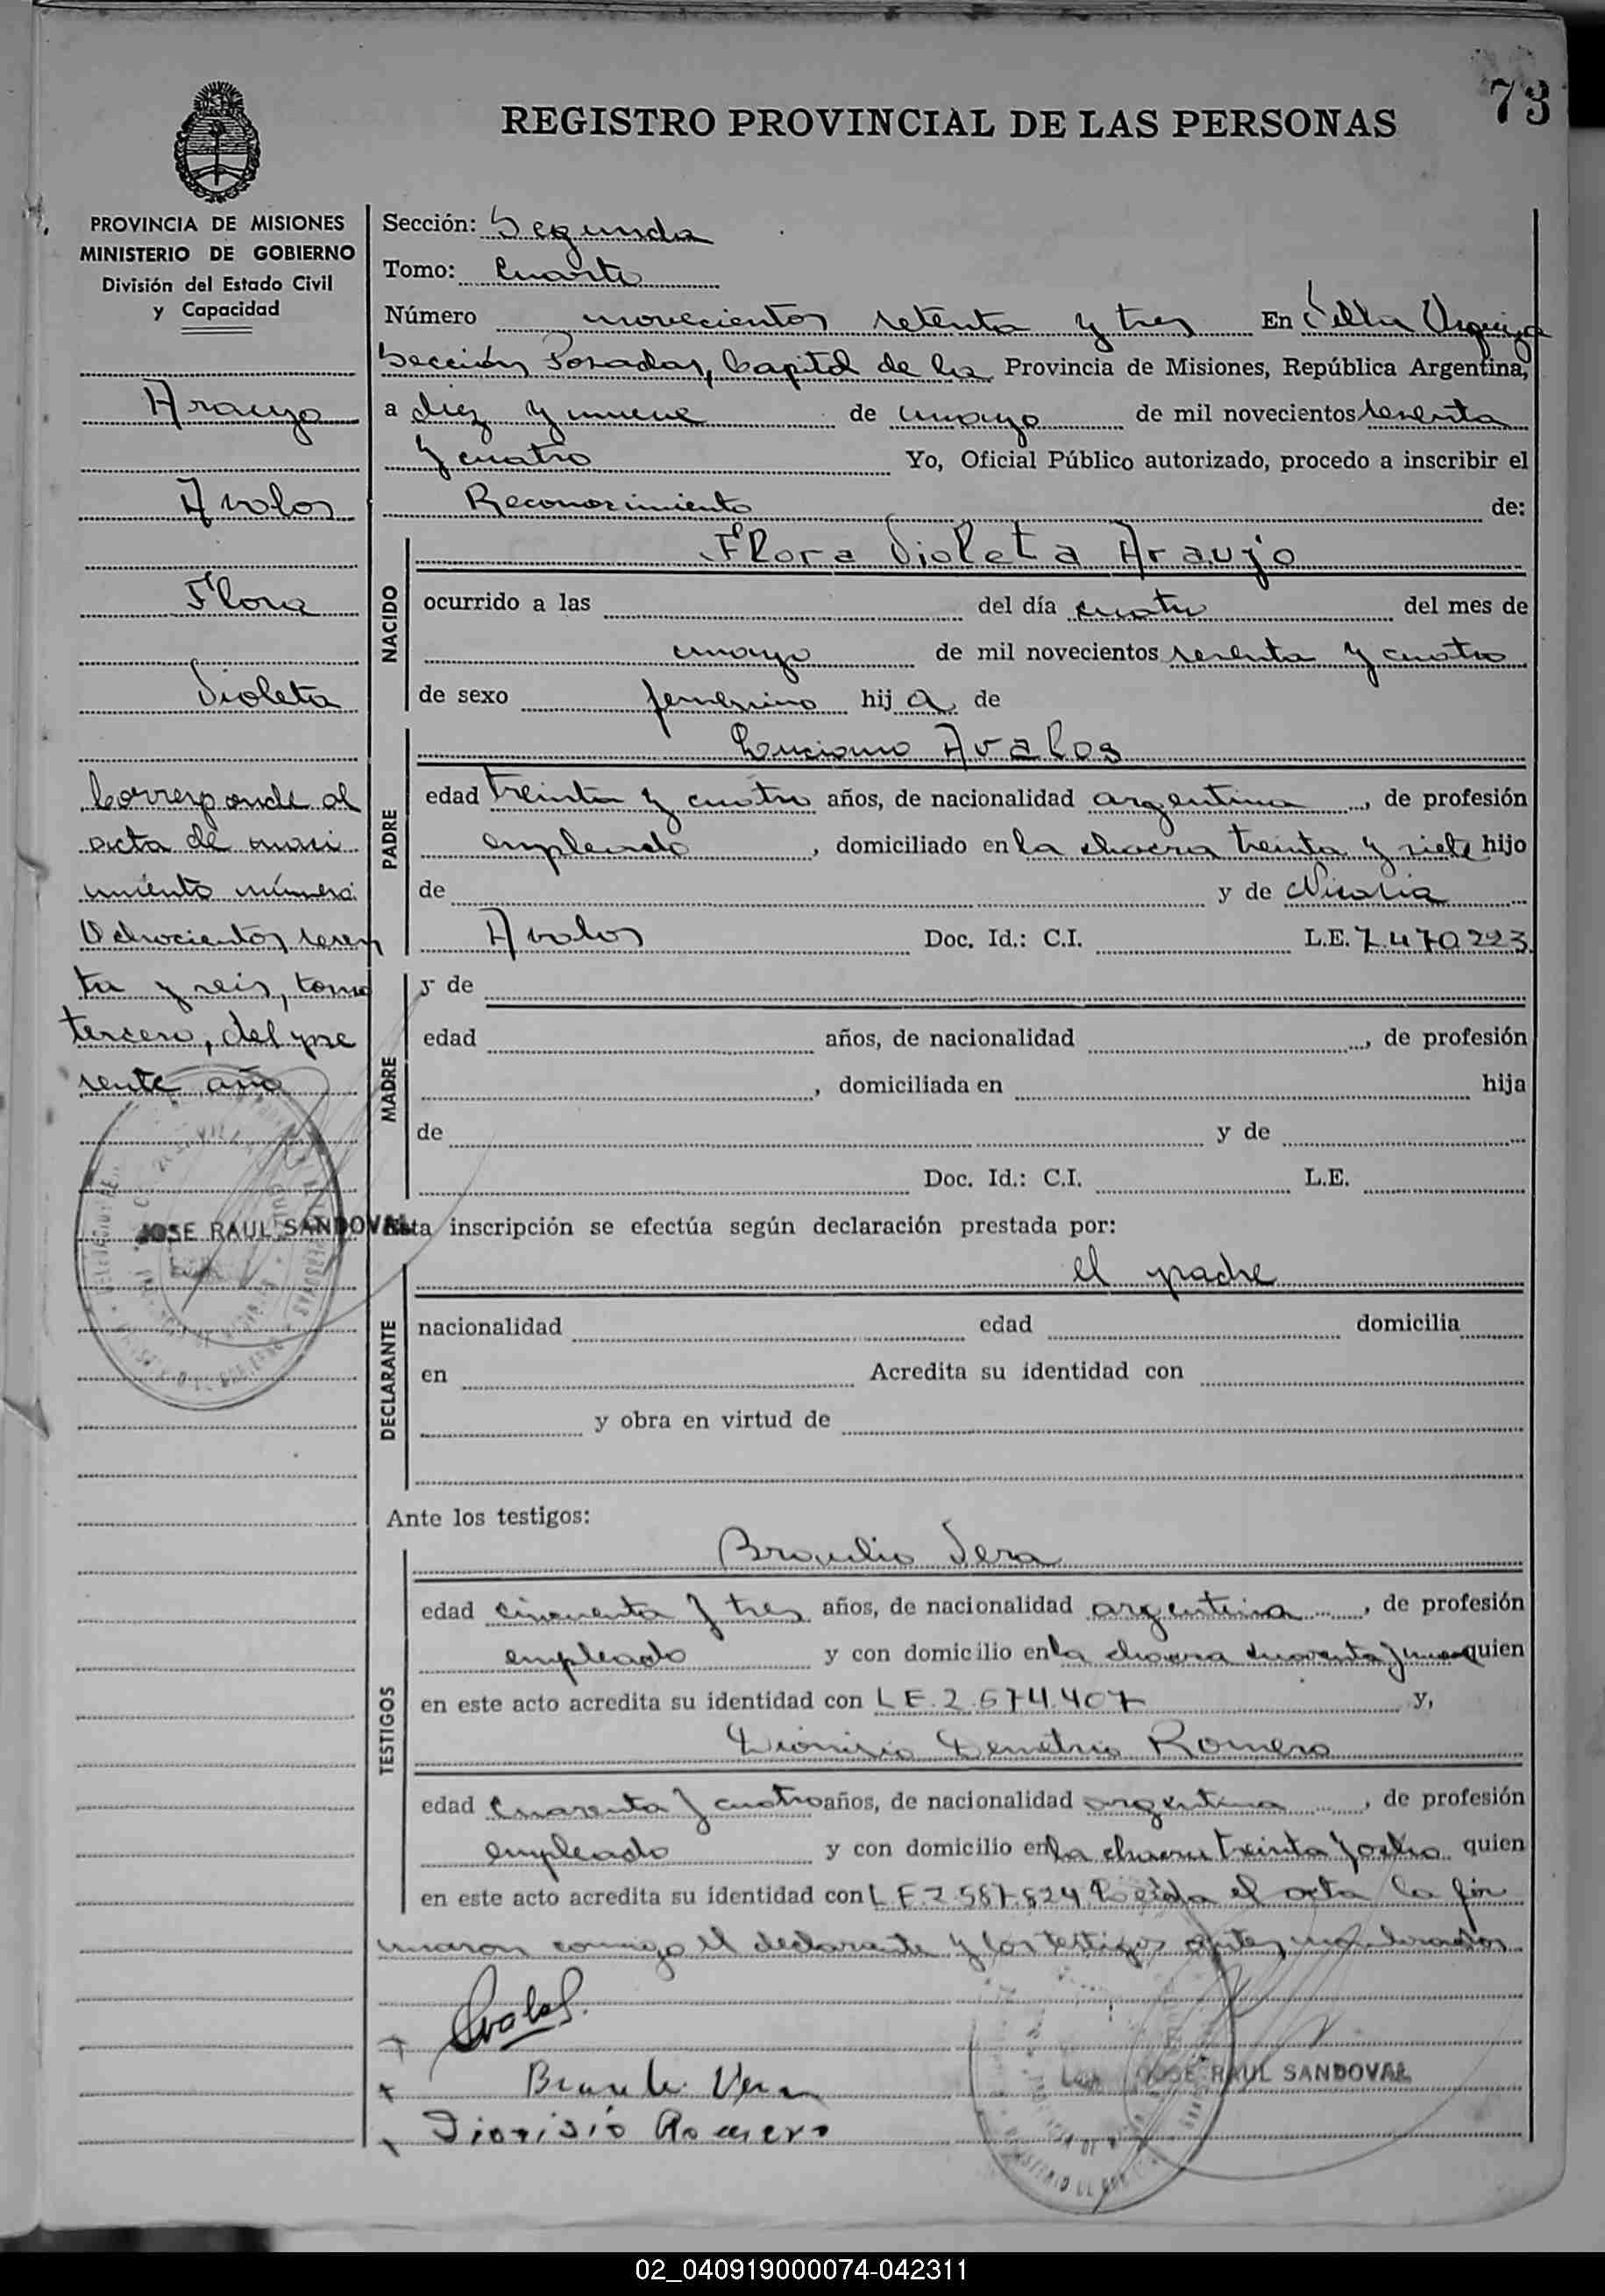 73
REGISTRO PROVINCIAL DE LAS PERSONAS
PROVINCIA DE MISIONES
MINISTERIO DE GOBIERNO
División del Estado Civil
y Capacidad
Araujo
Avalos
Flora
Violeta
Corresponde al
acta de naci
miento número
Ochocientos sesen
ta y seis, tomo
tercero, del pre
sente año
JOSE RAUL SANDOVAL
Sección: Segunda
Tomo: Cuarto
Número novecientos setenta y tres En Villa Urquiza
Sección Posadas, Capital de la Provincia de Misiones, República Argentina,
a diez y nueve de mayo de mil novecientos sesenta
y cuatro Yo, Oficial Público autorizado, procedo a inscribir el
Reconocimiento de:
NACIDO
Flora Violeta Araujo
ocurrido a las del día cuatro del mes de
mayo de mil novecientos sesenta y cuatro
de sexo femenino hij a de
PADRE
Luciano Avalos
edad treinta y cuatro años, de nacionalidad argentina, de profesión
empleado, domiciliado en la chacra treinta y siete hijo
de y de Nicasia
Avalos Doc. Id.: C.I. L.E. 7.470.223
MADRE
y de
edad años, de nacionalidad , de profesión
, domiciliada en hija
de y de
Doc. Id.: C.I. L.E.
Esta inscripción se efectúa según declaración prestada por:
DECLARANTE
el padre
nacionalidad edad domicilia
en Acredita su identidad con
y obra en virtud de
Ante los testigos:
TESTIGOS
Braulio Vera
edad cincuenta y tres años, de nacionalidad argentina, de profesión
empleado y con domicilio en la chacra cuarenta y quien
en este acto acredita su identidad con L E. 2.674.407 y,
Dionisio Demetrio Romero
edad cuarenta y cuatro años, de nacionalidad argentina, de profesión
empleado y con domicilio en la chacra treinta y ocho quien
en este acto acredita su identidad con L E 2.587.824 Leída el acta la fir
maron conmigo el declarante y los testigos antes nombrados
Avalos
Braulio Vera
JOSE RAUL SANDOVAL
Dionisio Romero
02_040919000074-042311